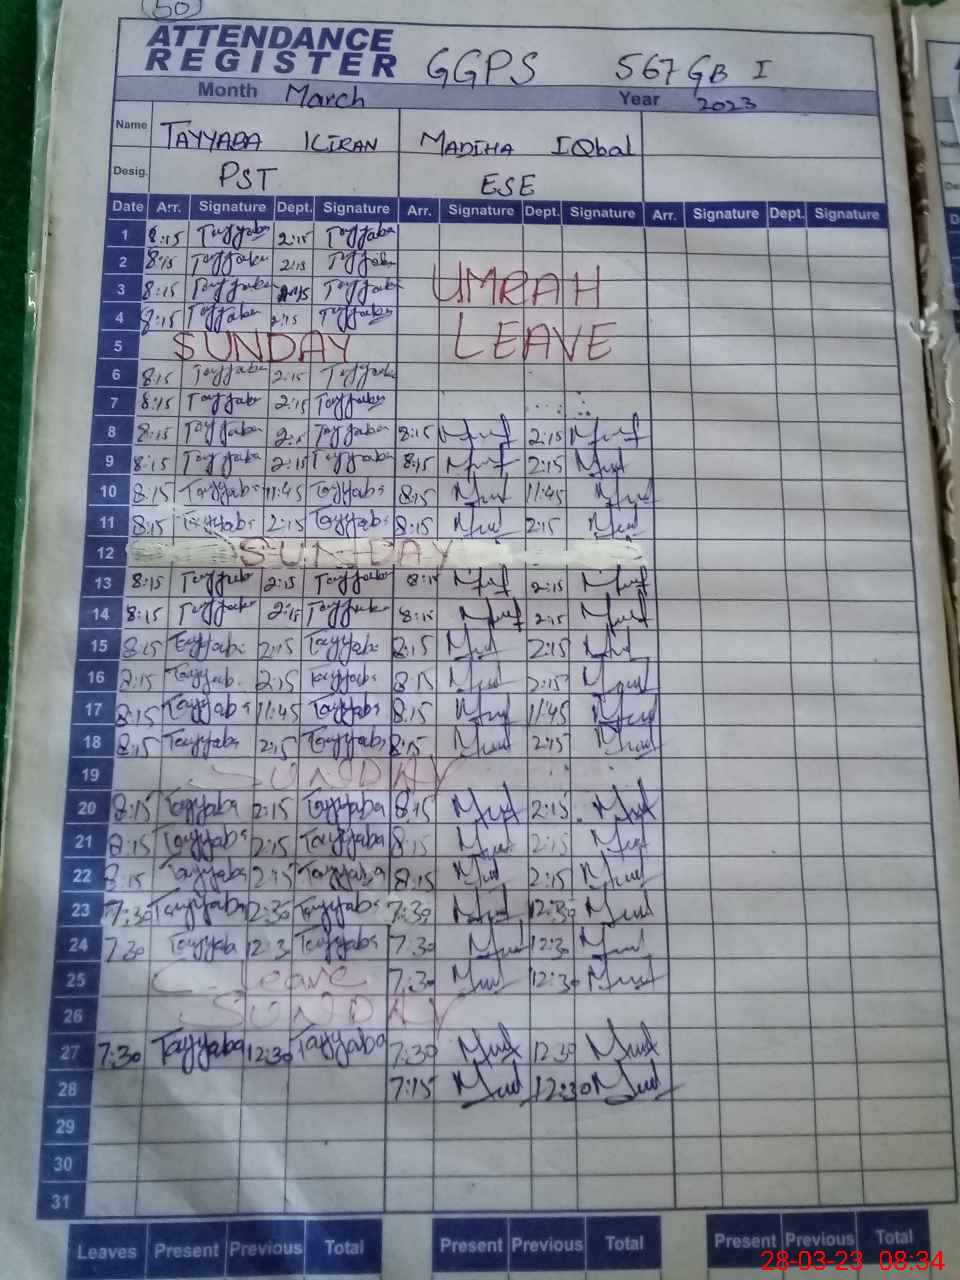 50
ATTENDANCE
REGISTER GGPS 567 GB I
Month March Year 2023
Name TAYYABA KIRAN MADIHA IQbal
Desig. PST ESE
Date Arr. Signature Dept. Signature Arr. Signature Dept. Signature Arr. Signature Dept. Signature
1 8:15 Tayyaba 2:15 Tayyaba
2 8:15 Tayyaba 2:15 Tayyaba
3 8:15 Tayyaba 2:15 Tayyaba UMRAH
4 8:15 Tayyaba 2:15 Tayyaba
5 SUNDAY LEAVE
6 8:15 Tayyaba 2:15 Tayyaba
7 8:15 Tayyaba 2:15 Tayyaba
8 8:15 Tayyaba 2:15 Tayyaba 8:15 2:15
9 8:15 Tayyaba 2:15 Tayyaba 8:15 2:15
10 8:15 Tayyaba 11:45 Tayyaba 8:15 11:45
11 8:15 Tayyaba 2:15 Tayyaba 8:15 2:15
12 SUNDAY
13 8:15 Tayyaba 2:15 Tayyaba 8:15 2:15
14 8:15 Tayyaba 2:15 Tayyaba 8:15 2:15
15 8:15 Tayyaba 2:15 Tayyaba 8:15 2:15
16 8:15 Tayyab 2:15 Tayyaba 8:15 2:15
17 8:15 Tayyaba 11:45 Tayyaba 8:15 11:45
18 8:15 Tayyaba 2:15 Tayyaba 8:15 2:15
19 SUNDAY
20 8:15 Tayyaba 2:15 Tayyaba 8:15 2:15
21 8:15 Tayyaba 2:15 Tayyaba 8:15 2:15
22 8:15 Tayyaba 2:15 Tayyaba 8:15 2:15
23 7:30 Tayyaba 12:30 Tayyaba 7:30 12:30
24 7:30 Tayyab 12:3 Tayyaba 7:30 12:30
25 C. Leave 7:30 12:30
26 SUNDAY
27 7:30 Tayyaba 12:30 Tayyaba 7:30 12:30
28 7:15 12:30
29
30
31
Leaves Present Previous Total Present Previous Total Present Previous Total
28-03-23 08:34